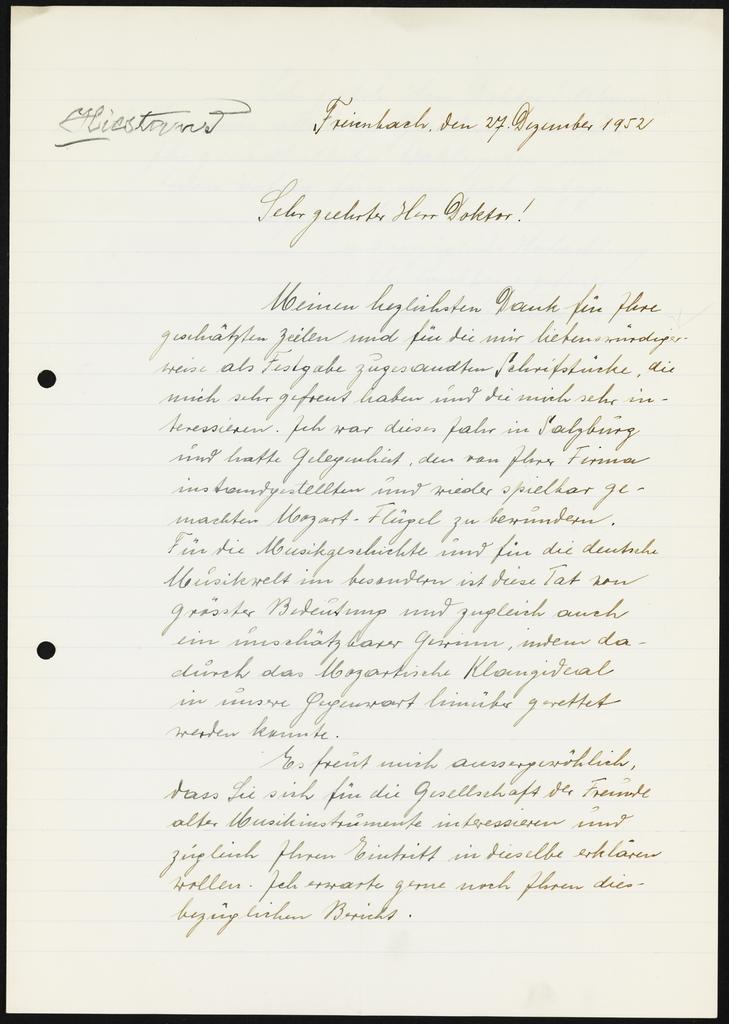 Hiestand
Freienbach, den 27. Dezember 1952
Sehr geehrter Herr Doktor!
Meinen herzlichsten Dank für Ihre
geschätzten Zeilen und für die mir liebenswürdiger-
weise als Festgabe zugesandten Schriftstücke, die
mich sehr gefreut haben und die mich sehr in-
teressieren. Ich war dieses Jahr in Salzburg
und hatte Gelegenheit, den von Ihrer Firma
instandgestellten und wieder spielbar ge-
machten Mozart-Flügel zu bewundern.
Für die Musikgeschichte und für die deutsche
Musikwelt im besondern ist diese Tat von
grösster Bedeutung und zugleich auch
ein unschätzbarer Gewinn, indem da-
durch das Mozartische Klangideal
in unsere Gegenwart hinüber gerettet
werden konnte.
Es freut mich aussergewöhlich,
dass Sie sich für die Gesellschaft der Freunde
alter Musikinstrumente interessieren und
zugleich Ihren Eintritt in dieselbe erklären
wollen. Ich erwarte gerne noch Ihren dies-
bezüglichen Bericht.